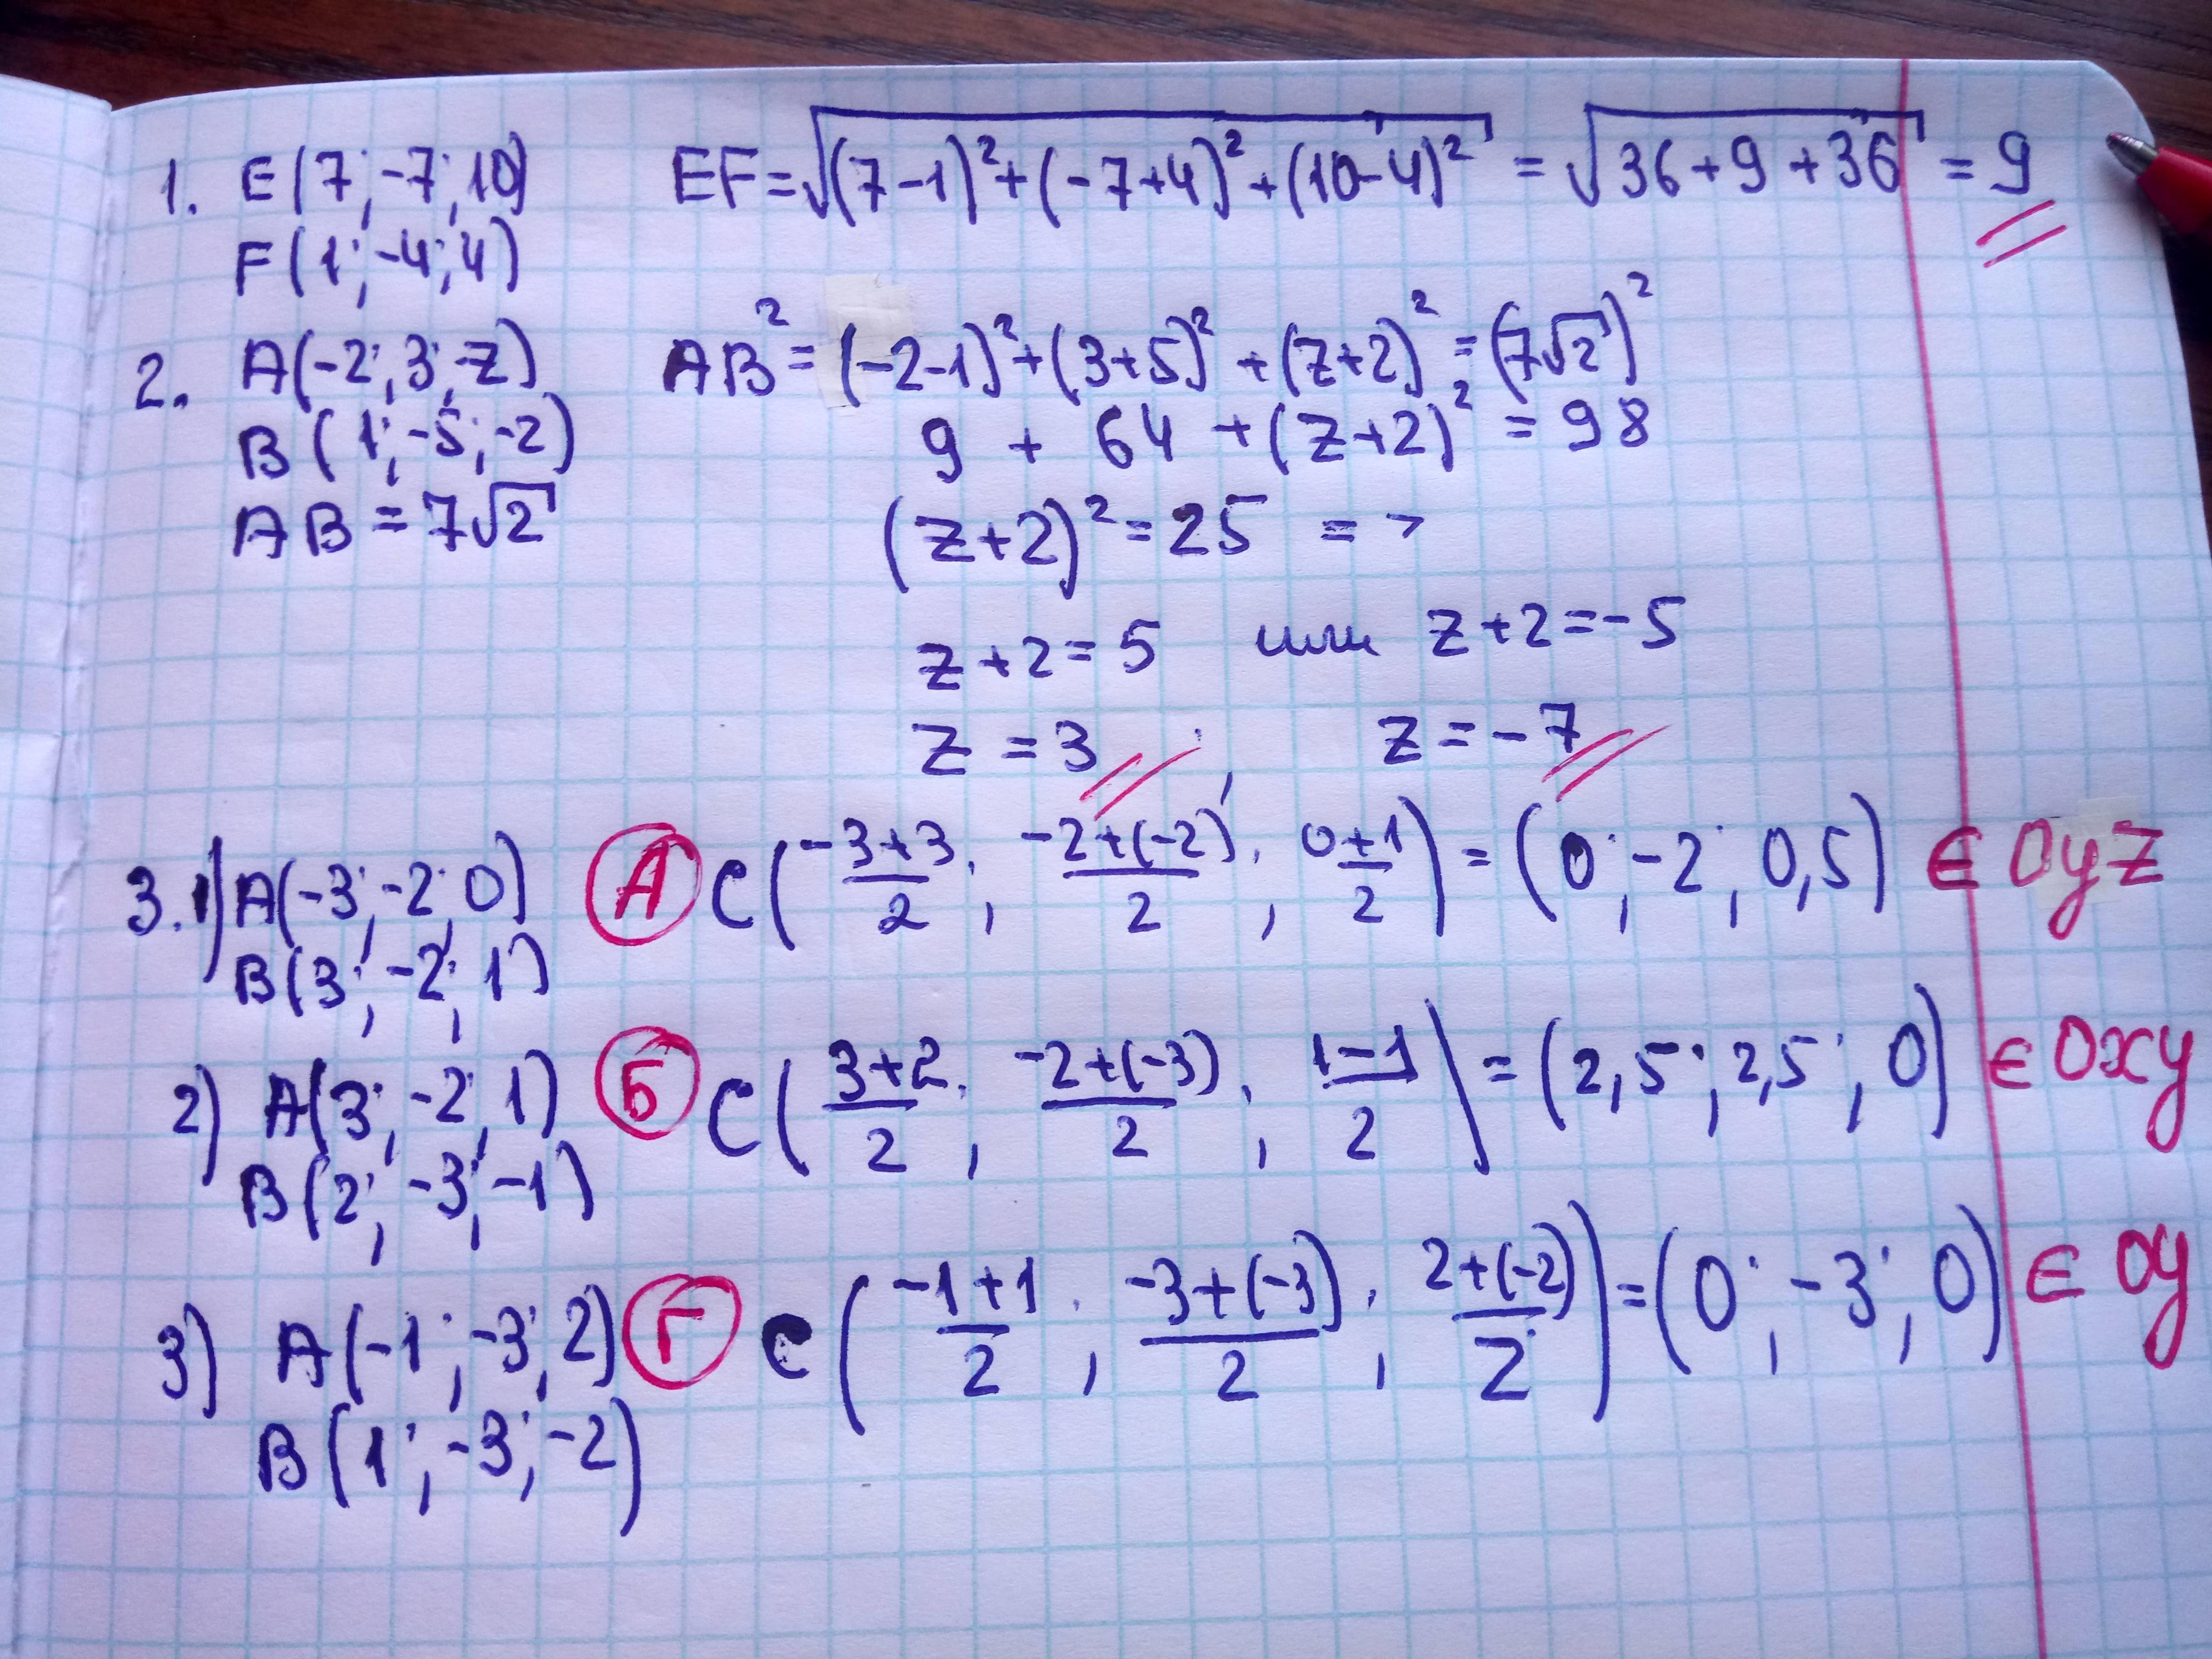 1. E(7; -7; 10) EF = √((7-1)²+(-7+4)²+(10-4)²) = √(36+9+36) = 9
F(1; -4; 4)
2. A(-2; 3; z) AB² = (-2-1)²+(3+5)²+(z+2)² = (7√2)²
B(1; -5; -2) 9 + 64 + (z+2)² = 98
AB = 7√2 (z+2)² = 25 =>
z+2=5 или z+2=-5
z = 3, z = -7
3. 1) A(-3; -2; 0) А C((-3+3)/2; (-2+(-2))/2; (0+1)/2) = (0; -2; 0,5) ∈ Oyz
B(3; -2; 1)
2) A(3; -2; 1) Б C((3+2)/2; (-2+(-3))/2; (1-1)/2) = (2,5; 2,5; 0) ∈ Oxy
B(2; -3; -1)
3) A(-1; -3; 2) Г C((-1+1)/2; (-3+(-3))/2; (2+(-2))/2) = (0; -3; 0) ∈ Oy
B(1; -3; -2)